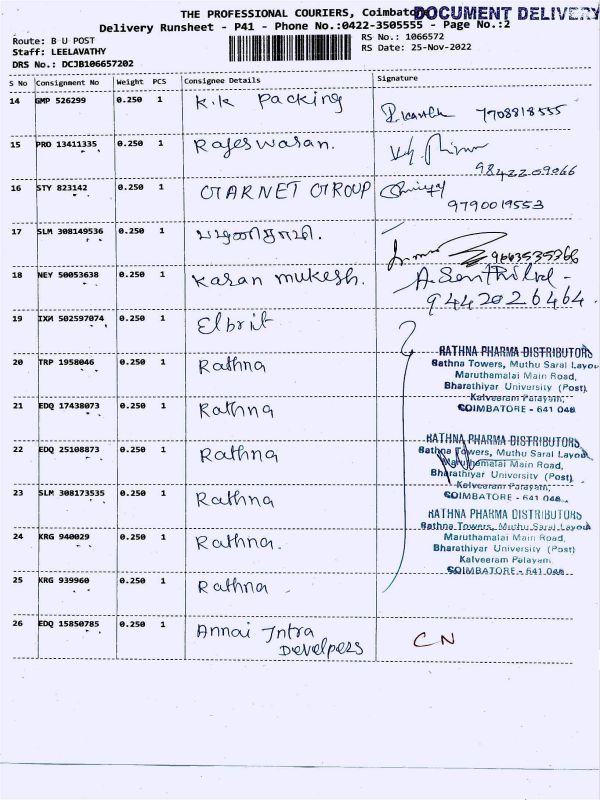 THE PROFESSIONAL COURIERS, Coimbato
DOCUMENT DELIVERY
Delivery Runsheet - P41 - Phone No.:0422-3505555 - Page No.:2
Route: B U POST
Staff: LEELAVATHY
DRS No.: DCJB106657202
RS No.: 1066572
RS Date: 25-Nov-2022
S No Consignment No Weight PCS Consignee Details Signature
14 GMP 526299 0.250 1 K.K Packing 7708818555
15 PRO 13411335 0.250 1 Rajeswaran. 9842209066
16 STY 823142 0.250 1 GARNET GROUP 9790019553
17 SLM 308149536 0.250 1 பழனிசாமி. 9663535366
18 NEY 50053638 0.250 1 Karan mukesh. A. Senthilvel -
9442026464.
19 IXM 502597074 0.250 1 Elbrit
20 TRP 1958046 0.250 1 Rathna
21 EDQ 17438073 0.250 1 Rathna
22 EDQ 25108873 0.250 1 Rathna
23 SLM 308173535 0.250 1 Rathna
24 KRG 940029 0.250 1 Rathna.
25 KRG 939960 0.250 1 Rathna
26 EDQ 15850785 0.250 1 Annai Intra
Develpers
CN
RATHNA PHARMA DISTRIBUTORS
Rathna Towers, Muthu Saral Layou
Maruthamalai Main Road,
Bharathiyar University (Post)
Kalveeram Palayam,
COIMBATORE - 641 046
RATHNA PHARMA DISTRIBUTORS
Rathna Towers, Muthu Saral Layout
Maruthamalai Main Road,
Bharathiyar University (Post)
Kalveeram Palayam,
COIMBATORE - 641 046.
RATHNA PHARMA DISTRIBUTORS
Rathna Towers, Muthu Saral Layout
Maruthamalai Main Road,
Bharathiyar University (Post)
Kalveeram Palayam,
COIMBATORE - 641 046